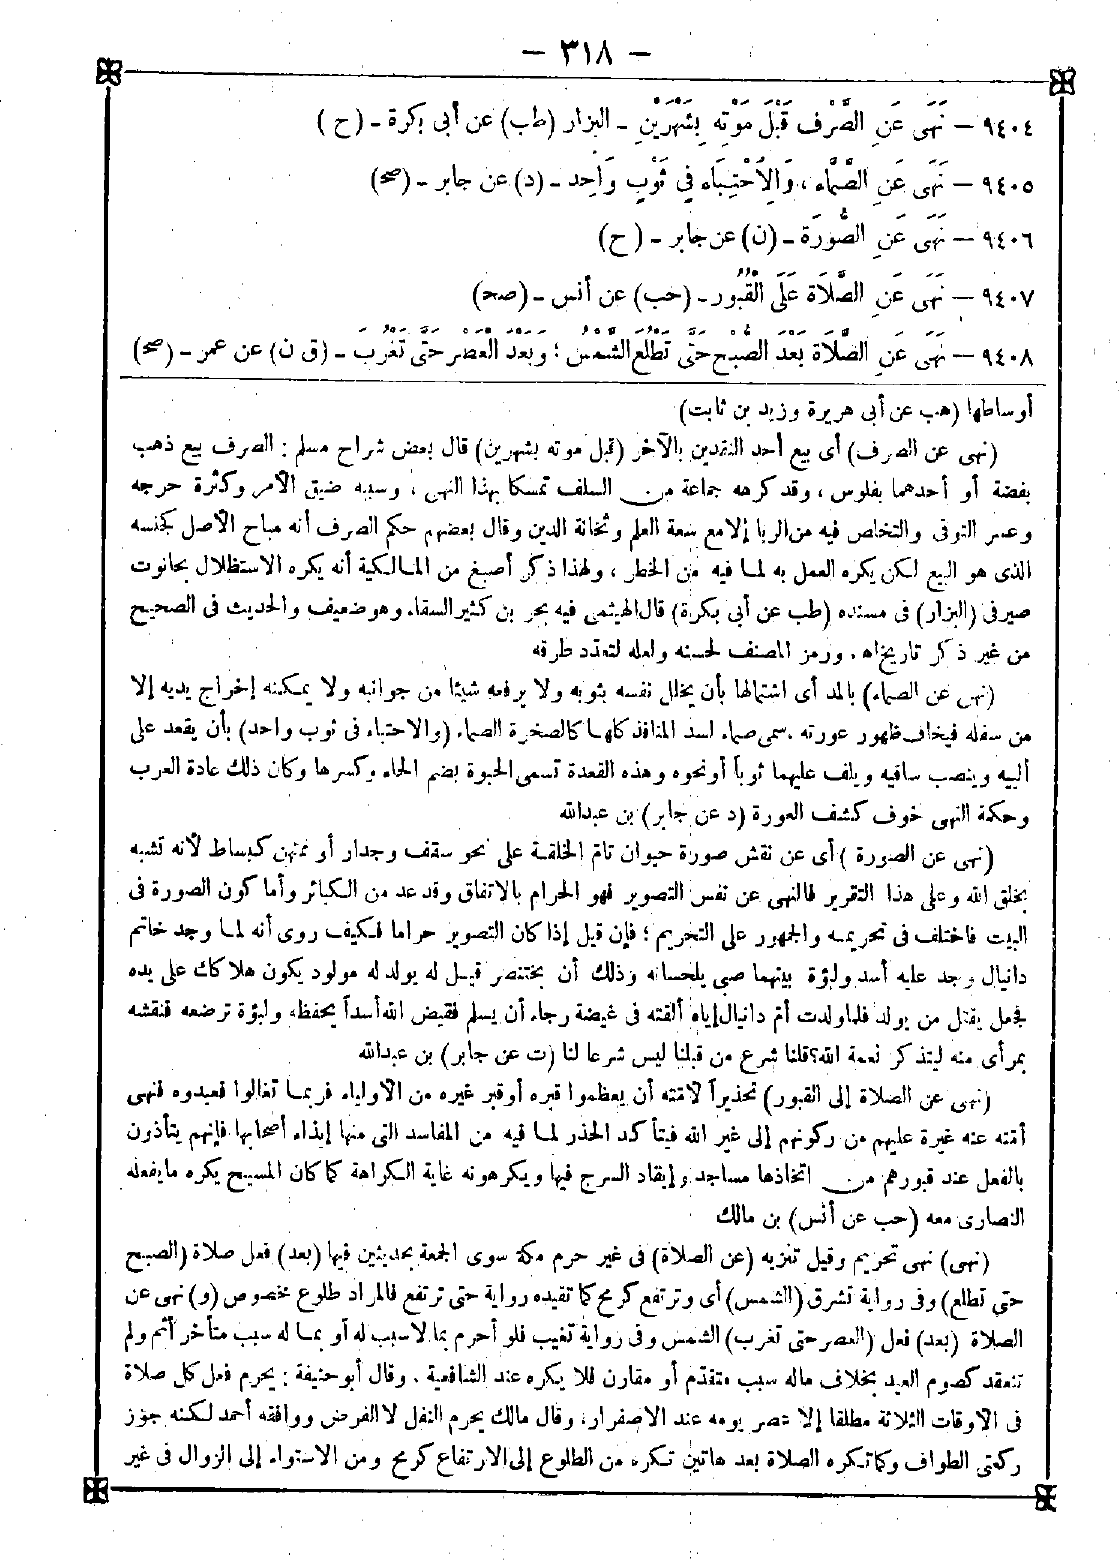 – ٣١٨ –
٩٤٠٤ – نَهَى عَنِ الصَّرْفِ قَبْلَ مَوْتِهِ بِشَهْرَيْنِ – البزار (طب) عن أبى بكرة – (ح)
٩٤٠٥ – نَهَى عَنِ الصَّمَّاءِ، وَالِاحْتِبَاءِ فِي ثَوْبٍ وَاحِدٍ – (د) عن جابر – (صح)
٩٤٠٦ – نَهَى عَنِ الصُّورَةِ – (ن) عن جابر – (ح)
٩٤٠٧ – نَهَى عَنِ الصَّلَاةِ عَلَى الْقُبُورِ – (حب) عن أنس – (صح)
٩٤٠٨ – نَهَى عَنِ الصَّلَاةِ بَعْدَ الصُّبْحِ حَتَّى تَطْلُعَ الشَّمْسُ؛ وَبَعْدَ الْعَصْرِ حَتَّى تَغْرُبَ – (ق ن) عن عمر – (صح)
أوساطها (هب عن أبى هريرة وزيد بن ثابت)
(نهى عن الصرف) أى بيع أحد النقدين بالآخر (قبل موته بشهرين) قال بعض شراح مسلم : الصرف بيع ذهب
بفضة أو أحدهما بفلوس ، وقد كرهه جماعة من السلف تمسكا بهذا النهى ، وسببه ضيق الأمر وكثرة حرجه
وعسر التوقى والتخلص فيه من الربا إلا مع سعة العلم وثخانة الدين وقال بعضهم حكم الصرف أنه مباح الأصل كجنسه
الذى هو البيع لكن يكره العمل به لما فيه من الخطر ، ولهذا ذكر أصبغ من المالكية أنه يكره الاستظلال بحانوت
صيرفى (البزار) فى مسنده (طب عن أبى بكرة) قال الهيثمى فيه بحر بن كثير السقاء وهو ضعيف والحديث فى الصحيح
من غير ذكر تاريخ اه . ورمز المصنف لحسنه ولعله لتعدد طرقه
(نهى عن الصماء) بالمد أى اشتمالها بأن يخلل نفسه بثوبه ولا يرفعه شيئا من جوانبه ولا يمكنه إخراج يديه إلا
من سفله فيخاف ظهور عورته . سمى صماء لسد المنافذ كلها كالصخرة الصماء (والاحتباء فى ثوب واحد) بأن يقعد على
ألييه وينصب ساقيه ويلف عليهما ثوباً أو نحوه وهذه القعدة تسمى الحبوة بضم الحاء وكسرها وكان ذلك عادة العرب
وحكمة النهى خوف كشف العورة (د عن جابر) بن عبدالله
(نهى عن الصورة ) أى عن نقش صورة حيوان تام الخلقة على نحو سقف وجدار أو ممتهن كبساط لأنه تشبه
بخلق الله وعلى هذا التقرير فالنهى عن نفس التصوير فهو الحرام بالاتفاق وقد عد من الكبائر وأما كون الصورة فى
البيت فاختلف فى تحريمه والجمهور على التحريم ؛ فإن قيل إذا كان التصوير حراما فكيف روى أنه لما وجد خاتم
دانيال وجد عليه أسد ولبؤة بينهما صبى يلحسانه وذلك أن بختنصر قيل له يولد له مولود يكون هلاكك على يده
فجعل يقتل من يولد فلما ولدت أم دانيال إياه ألقته فى غيضة رجاء أن يسلم فقيض الله أسداً يحفظه ولبؤة ترضعه فنقشه
بمرأى منه ليتذكر نعمة الله؟ قلنا شرع من قبلنا ليس شرعا لنا (ت عن جابر) بن عبدالله
(نهى عن الصلاة إلى القبور) تحذيراً لأمته أن يعظموا قبره أو قبر غيره من الأولياء فربما تغالوا فعبدوه فنهى
أمته عنه غيرة عليهم من ركونهم إلى غير الله فيتأكد الحذر لما فيه من المفاسد التى منها إيذاء أصحابها فإنهم يتأذون
بالفعل عند قبورهم من اتخاذها مساجد وإيقاد السرج فيها ويكرهونه غاية الكراهة كما كان المسيح يكره ما يفعله
النصارى معه (حب عن أنس) بن مالك
(نهى) نهى تحريم وقيل تنزيه (عن الصلاة) فى غير حرم مكة سوى الجمعة بحديثين فيها (بعد) فعل صلاة (الصبح
حتى تطلع) وفى رواية تشرق (الشمس) أى وترتفع كرمح كما تفيده رواية حتى ترتفع فالمراد طلوع مخصوص (و) نهى عن
الصلاة (بعد) فعل (العصر حتى تغرب) الشمس وفى رواية تغيب فلو أحرم بما لا سبب له أو بما له سبب متأخر أثم ولم
تنعقد كصوم العيد بخلاف ماله سبب متقدم أو مقارن فلا يكره عند الشافعية . وقال أبو حنيفة : يحرم فعل كل صلاة
فى الأوقات الثلاثة مطلقا إلا عصر يومه عند الاصفرار ، وقال مالك يحرم النفل لا الفرض ووافقه أحمد لكنه جوز
ركعتى الطواف وكما تكره الصلاة بعد هاتين تكره من الطلوع إلى الارتفاع كرمح ومن الاستواء إلى الزوال فى غير